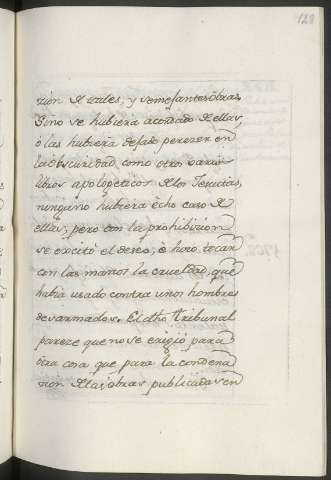 128
zion de tales, y semejantes obras
Sino se hubiera acordado de ellas,
ó las hubiera dejado perezer en
la obscuridad, como otros varios
libros apologeticos de los Jesuitas,
ninguno hubiera echo caso de
ellas; pero con la prohibizion
se excitó el deseo, é hizo tocar
con las manos la crueldad, que
habia usado contra unos hombres
desarmados. El dho Tribunal
pareze que no se erigió para
otra cosa, que para la condena
zion de las obras publicadas en